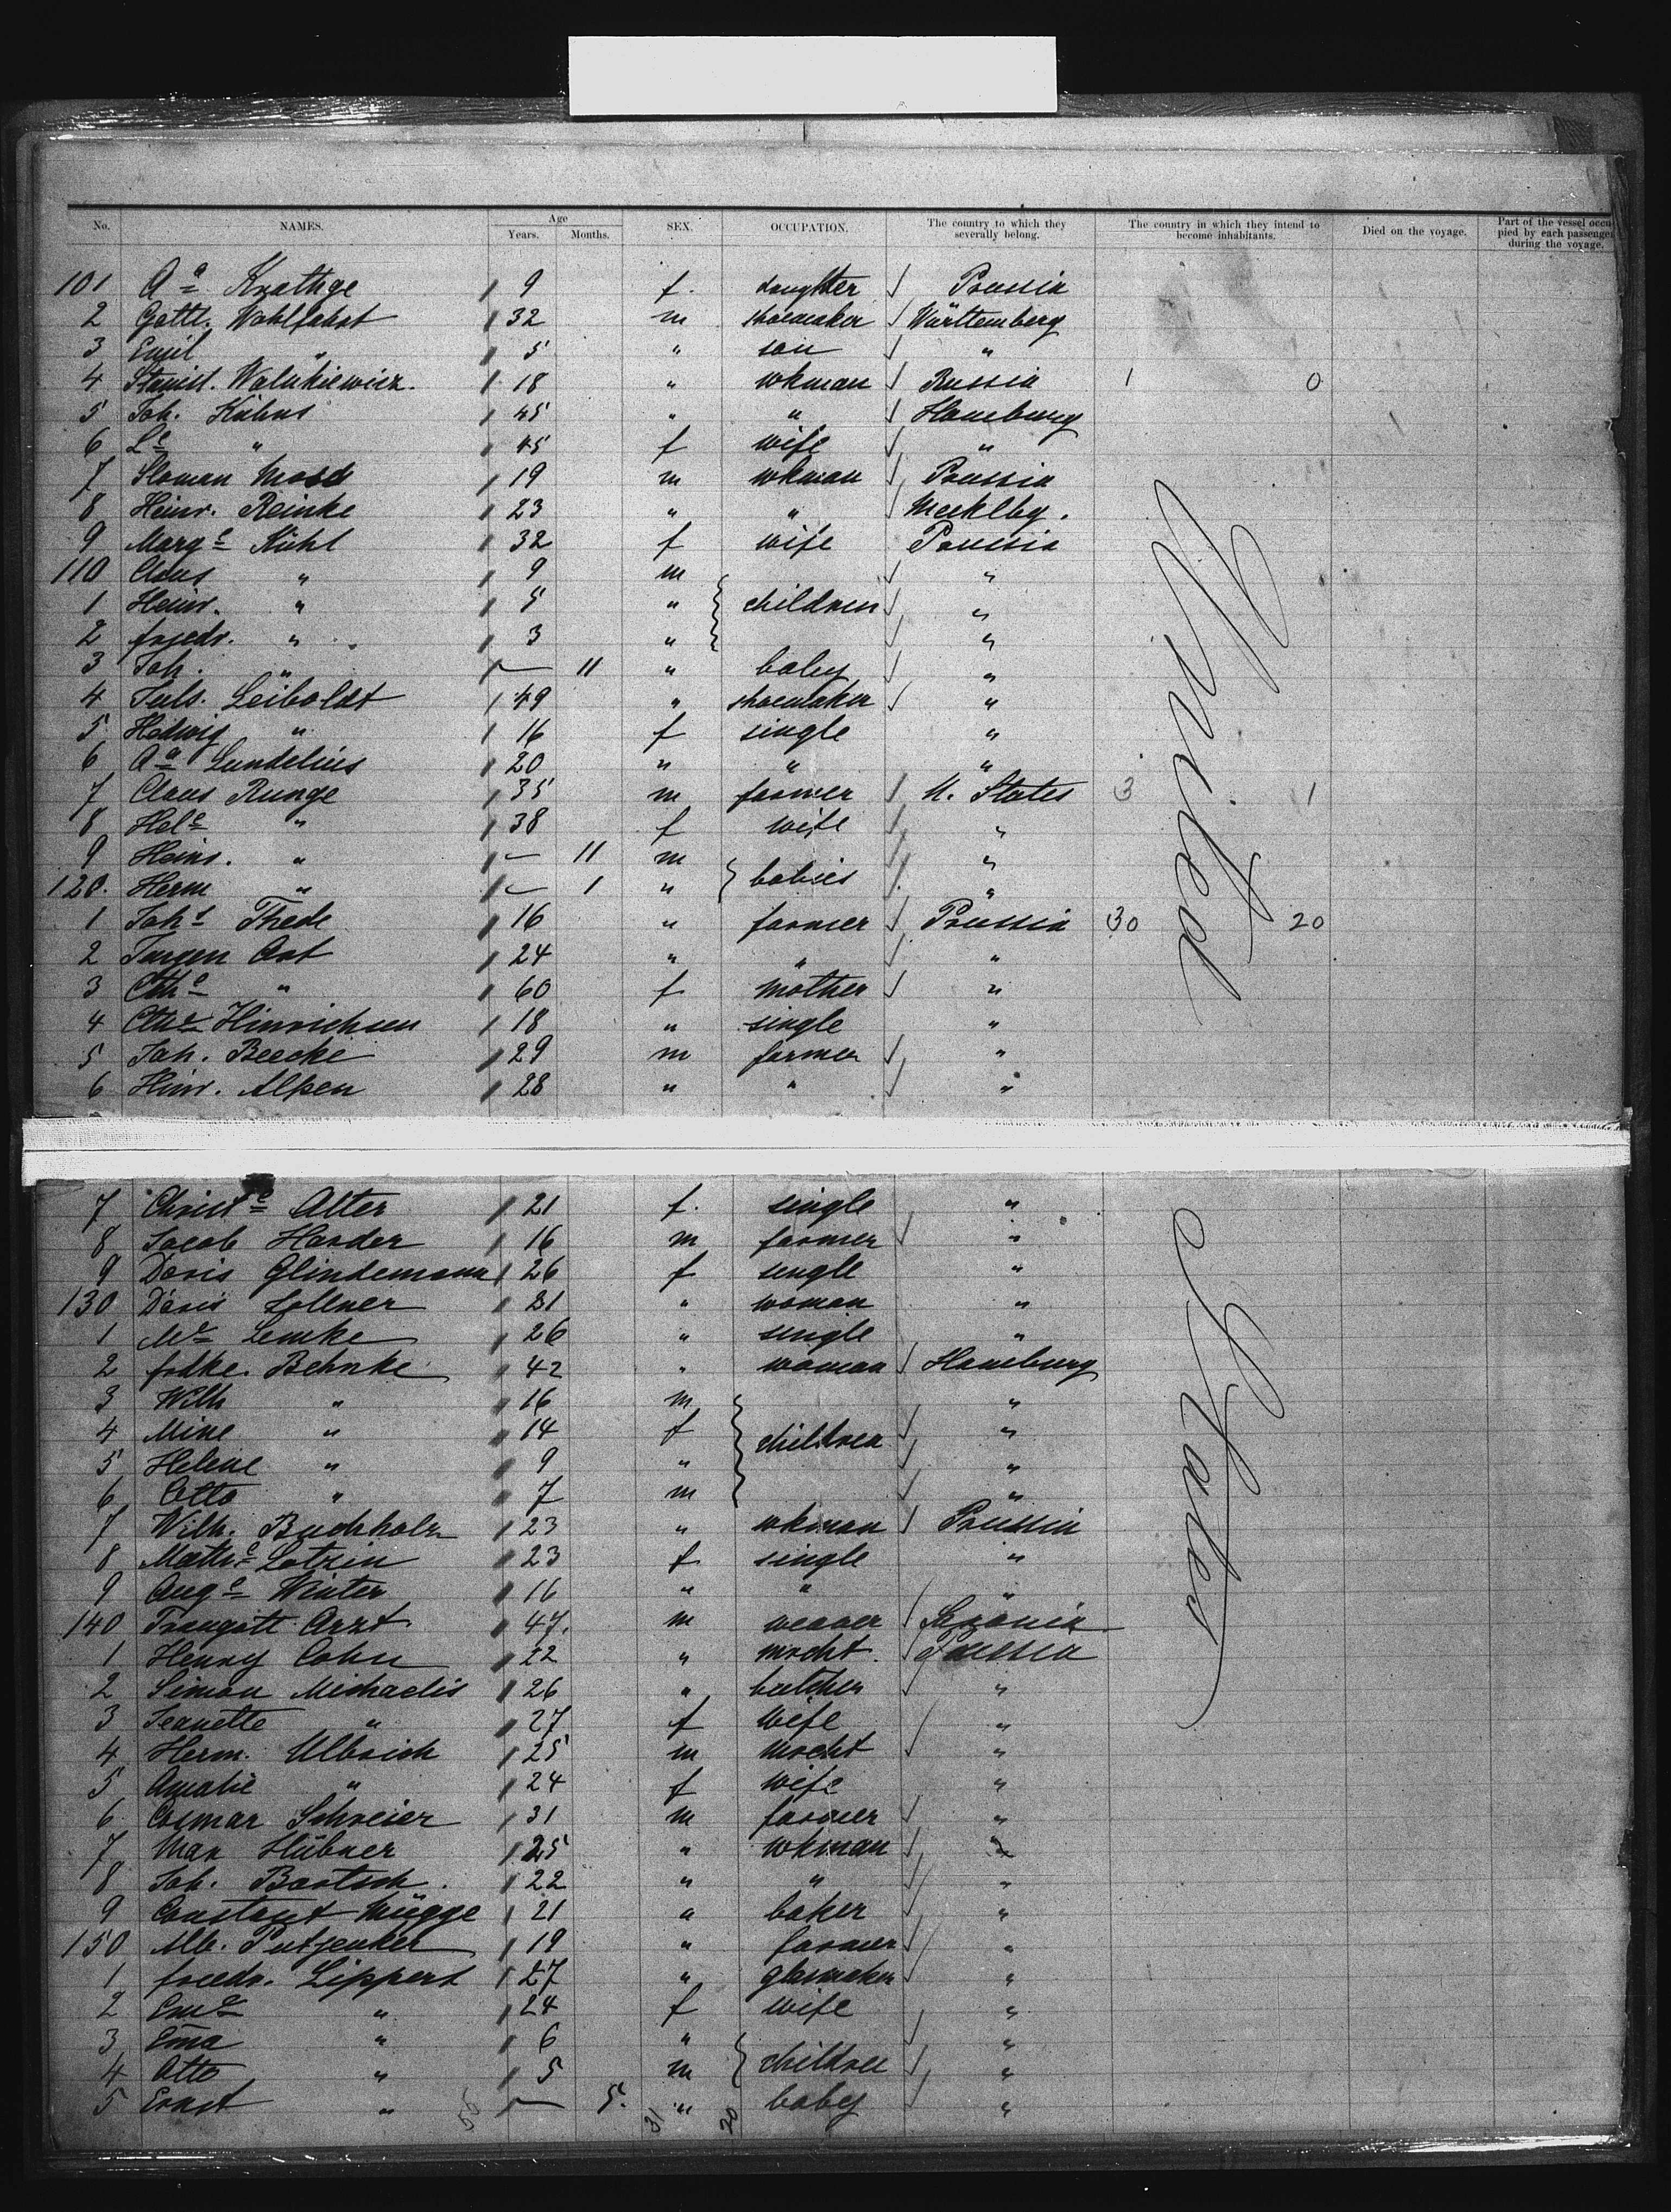 No. NAMES. Age Years. Months. SEX. OCCUPATION. The country to which they severally belong. The country in which they intend to become inhabitants. Died on the voyage. Part of the vessel occupied by each passenger during the voyage.
101 Aᵃ Knathge 9 f. daughter Prussia
2 Gottl. Wohlfahrt 32 m shoemaker Württemberg
3 Emil " 5 " son "
4 Stanisl. Walukiewicz. 18 " wkman Russia 1 0
5 Joh. Kühns 45 " " Hamburg
6 Lᵉ " 45 f wife "
7 Sloman 19 m wkman Prussia
8 Heinr. Reinke 23 " " Mecklbg.
9 Margᵉ Kühl 32 f wife Prussia
110 Claus " 9 m "
1 Heinr. " 5 " children "
2 friedr. " 3 " "
3 Joh. " — 11 " baby "
4 Juls. Leiboldt 49 " shoemaker "
5 Hedwig " 16 f single "
6 Aᵃ Lundelius 20 " " "
7 Claus Runge 35 m farmer U. States 3 1
8 Helᵉ " 38 f wife "
9 Heinr. " — 11 m babies "
120. Herm " — 1 " "
1 Johˢ Thede 16 " farmer Prussia 30 20
2 Jurgen Art 24 " " "
3 Cthᵉ " 60 f mother "
4 Cthᵉ Hinrichsen 18 " single "
5 Joh. Beecke 29 m farmer "
6 Hinr. Alpen 28 " " "
7 Christᵉ Alter 21 f. single "
8 Jacob Harder 16 m farmer "
9 Doris Glindemann 26 f single "
130 Doris Lollner 21 " woman "
1 Mᵉ Lemke 26 " single "
2 fritke. Behnke 42 " woman Hamburg
3 Wilh " 16 m "
4 Mine " 14 f children "
5 Helene " 9 " "
6 Otto " 7 m "
7 Wilh. Buchholz 23 " wkman Prussia
8 Mathᵉ Lotzin 23 f single "
9 Augᵉ Winter 16 " " "
140 Traugott Arzt 47. m weaver Saxonia
1 Henry Cohn 22 " mrcht. Prussia
2 Simon Michaelis 26 " butcher "
3 Jeanette " 27 f wife "
4 Herm. Ulbrich 25 m mrcht "
5 Amalie " 24 f wife "
6 Cosmar Schreier 31 m farmer "
7 Max Hübner 25 " wkman "
8 Joh. Bartsch. 22 " " "
9 Constant Mügge 21 " baker "
150 Alb. Putzenker 19 " farmer "
1 friedr. Lippert 27 " glasmaker "
2 Emᵉ " 24 f wife "
3 Ema " 6 " children "
4 Otto " 5 m "
5 Ernst " — 5. " baby "
55 31 20
United States